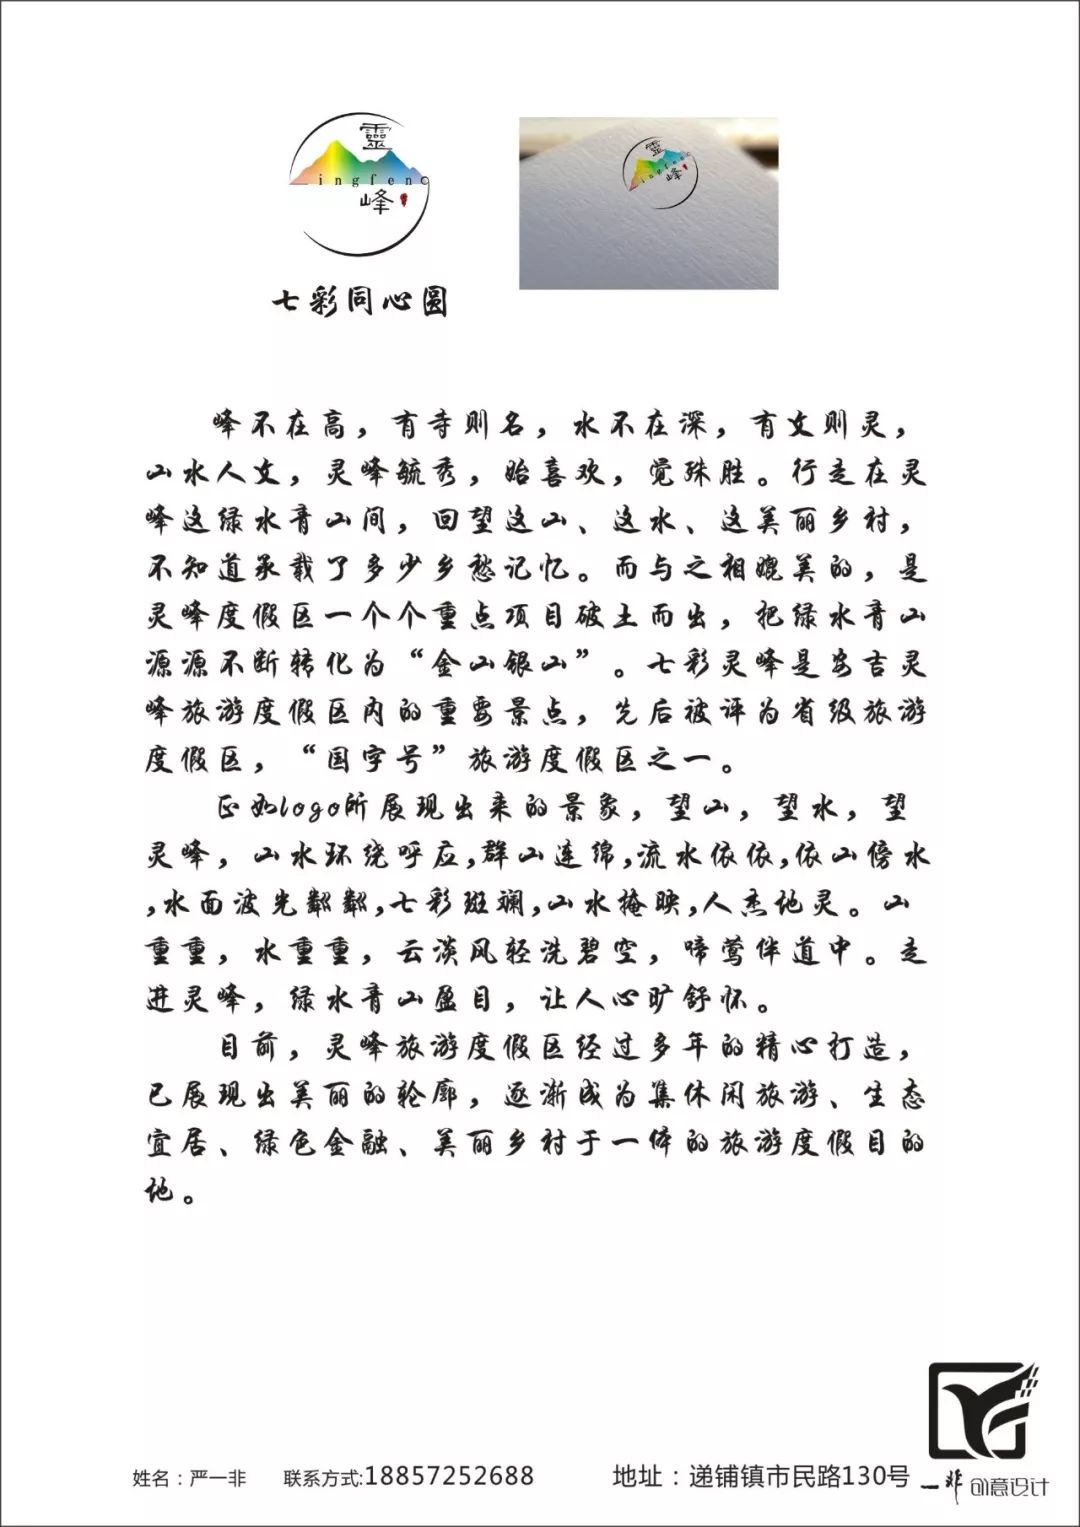 靈
ingfenc
峰
靈
ingfenc
峰
七彩同心圆
峰不在高，有寺则名，水不在深，有文则灵，
山水人文，灵峰毓秀，始喜欢，觉殊胜。行走在灵
峰这绿水青山间，回望这山、这水、这美丽乡村，
不知道承载了多少乡愁记忆。而与之相媲美的，是
灵峰度假区一个个重点项目破土而出，把绿水青山
源源不断转化为“金山银山”。七彩灵峰是安吉灵
峰旅游度假区内的重要景点，先后被评为省级旅游
度假区，“国字号”旅游度假区之一。
正如logo所展现出来的景象，望山，望水，望
灵峰，山水环绕呼应,群山连绵,流水依依,依山傍水
,水面波光粼粼,七彩斑斓,山水掩映,人杰地灵。山
重重，水重重，云淡风轻洗碧空，啼莺伴道中。走
进灵峰，绿水青山盈目，让人心旷舒怀。
目前，灵峰旅游度假区经过多年的精心打造，
已展现出美丽的轮廓，逐渐成为集休闲旅游、生态
宜居、绿色金融、美丽乡村于一体的旅游度假目的
地。
姓名：严一非 联系方式:18857252688 地址：递铺镇市民路130号
一非创意设计